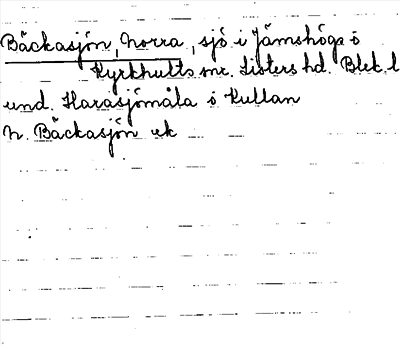 Bäckasjön, Norra, sjö i Jämshögs o
Kyrkhults snr. Listers hd. Blek. l
und. Harasjömåla o Kullan
N. Bäckasjön ek